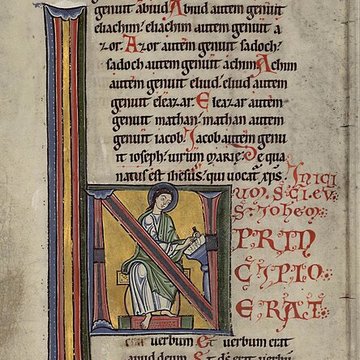 genuit abiud Abiud autem genuit
eliachim Eliachim autem genuit a
zor. Azor autem genuit sadoch.
sadoch autem genuit achim Achim
autem genuit eliud. eliud. autem
genuit eleazar Eleazar autem
genuit mathan. mathan autem
genuit iacob. Jacob autem genu
it ioseph. uirum marie. De qua
natus est ihesus. qui uocatur xps.
Inici
um
IN
PRIN
CIPIO
ERAT
uerbum Et uerbum erat
apud deum